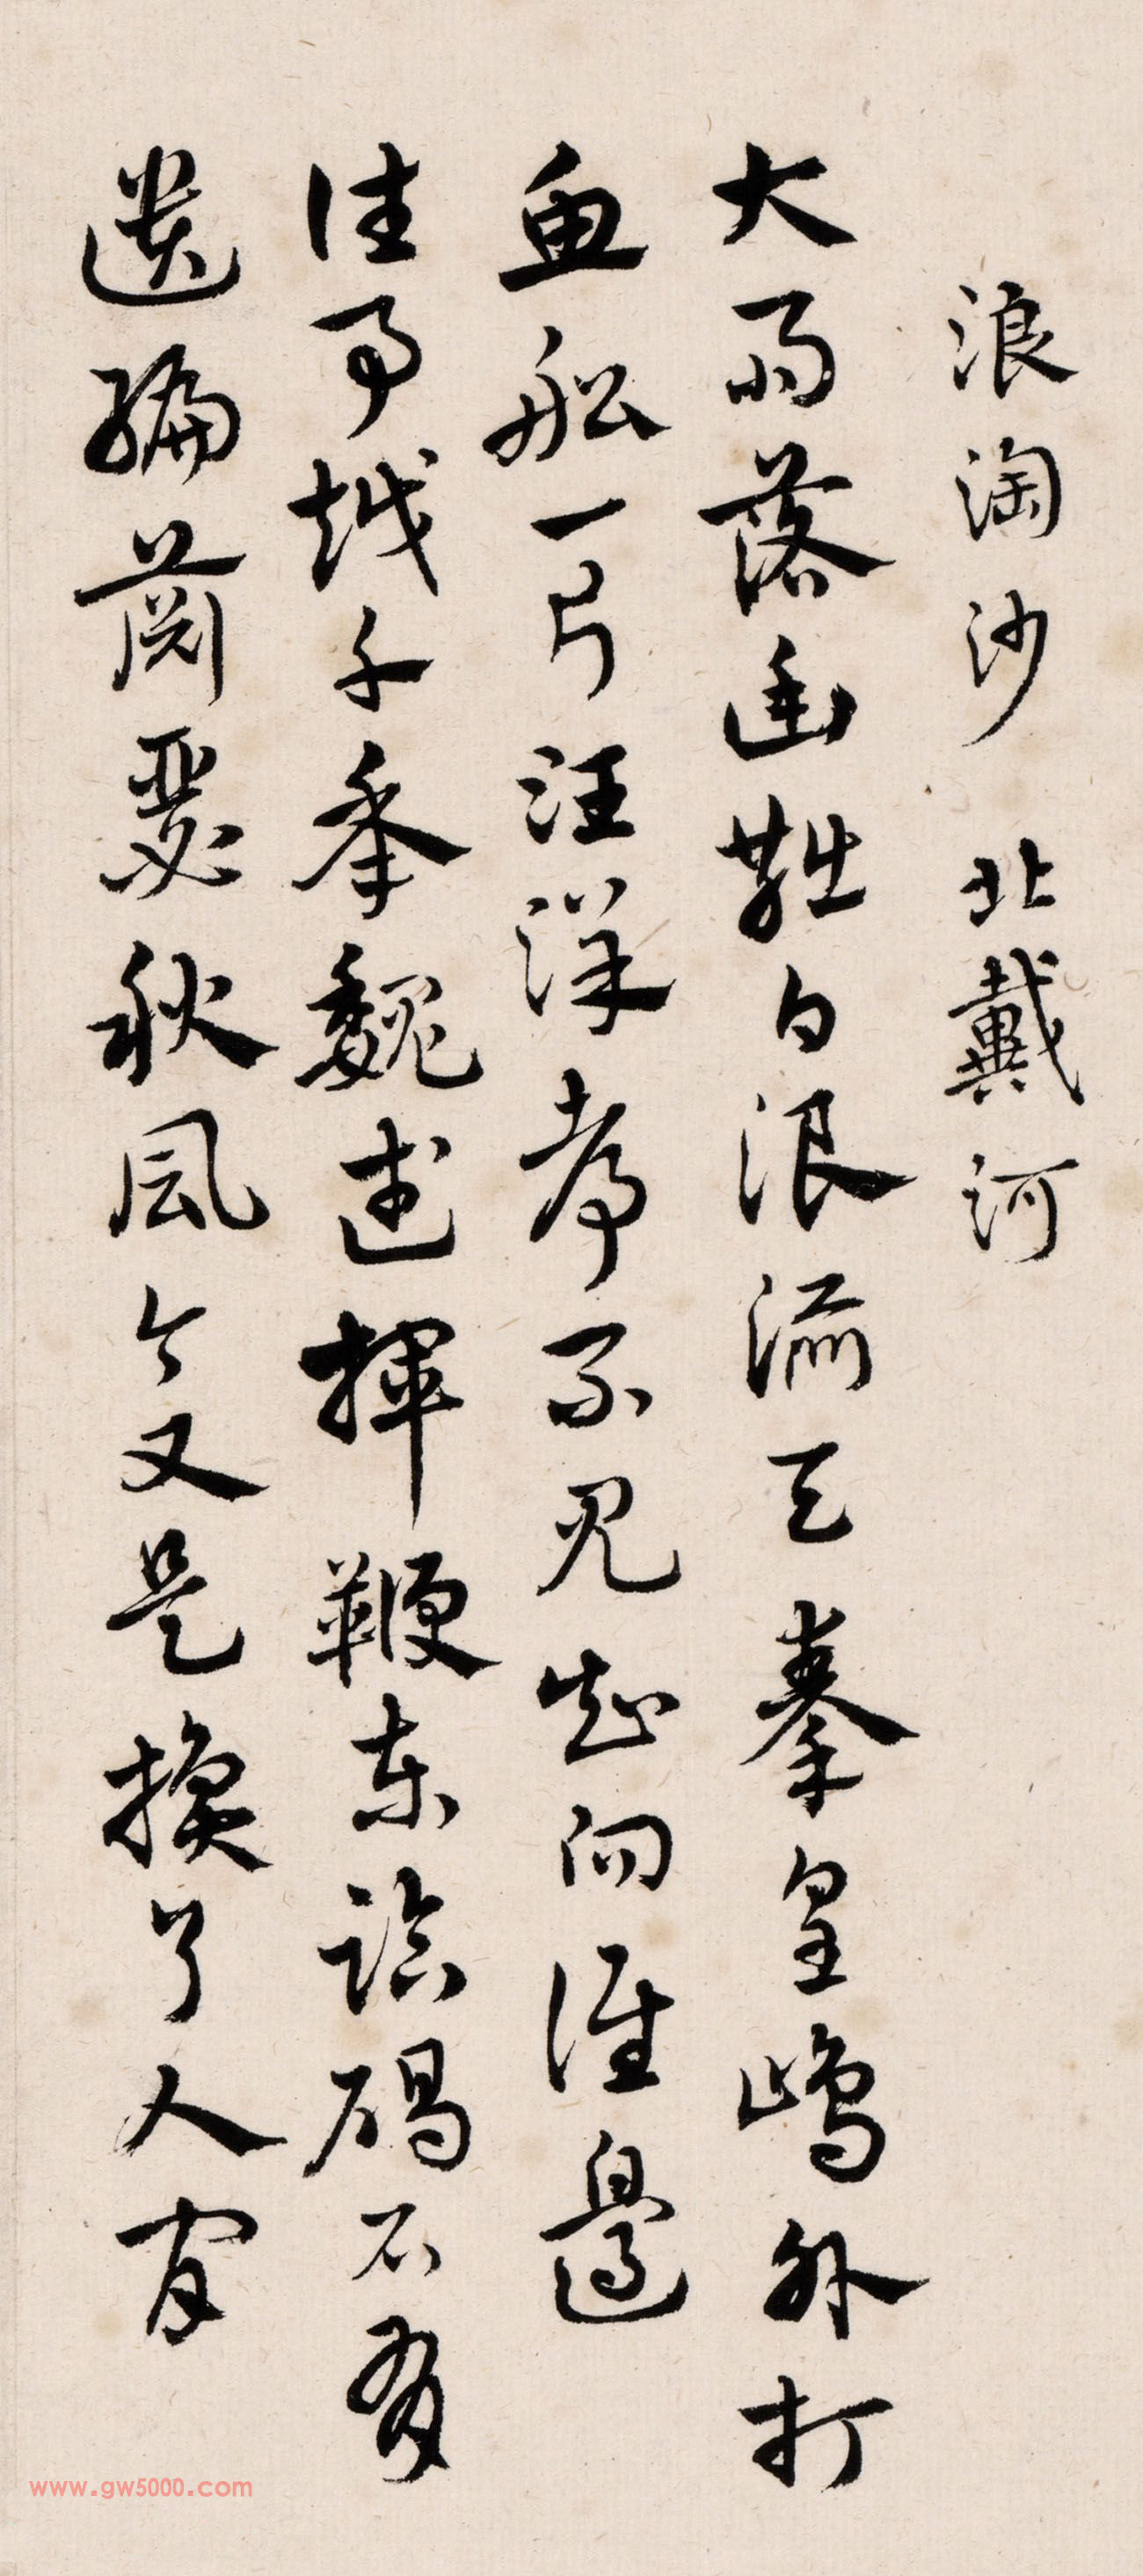 浪淘沙 北戴河
大雨落幽燕白浪滔天秦皇島外打
魚船一片汪洋都不見知向誰邊
往事越千年魏武揮鞭東臨碣石有
遺編蕭瑟秋風今又是換了人間
www.gw5000.com